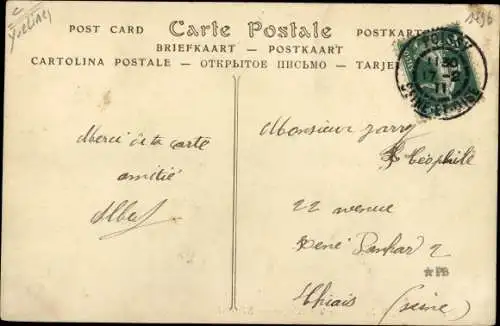 Yvelines
POST CARD Carte Postale POSTKARTE
BRIEFKAART - POSTKAART
CARTOLINA POSTALE - ОТКРЫТОЕ ПИСЬМО - TARJE
POISSY
11 30
17-2
11
SEINE-ET-OISE
Merci de ta carte
amitié
Albert
Monsieur Jarry
Théophile
22 avenue
René Panhard 2
★PB
Thiais (Seine)